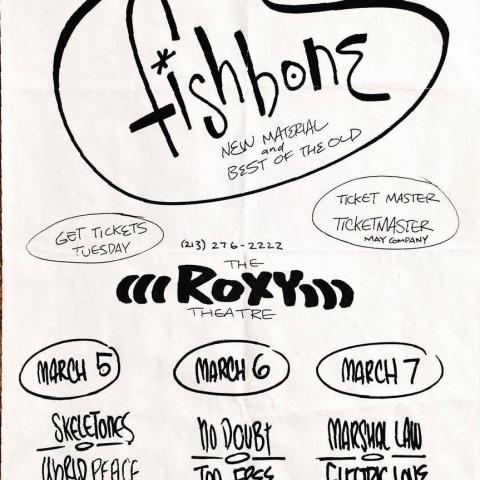 fishbone
NEW MATERIAL
and
BEST OF THE OLD
TICKET MASTER
TICKETMASTER
MAY COMPANY
GET TICKETS
TUESDAY
(213) 276-2222
THE
ROXY
THEATRE
MARCH 5 MARCH 6 MARCH 7
SKELETONES NO DOUBT MARSHAL LAW
WORLD PEACE TOO FREE ELECTRIC LOVE